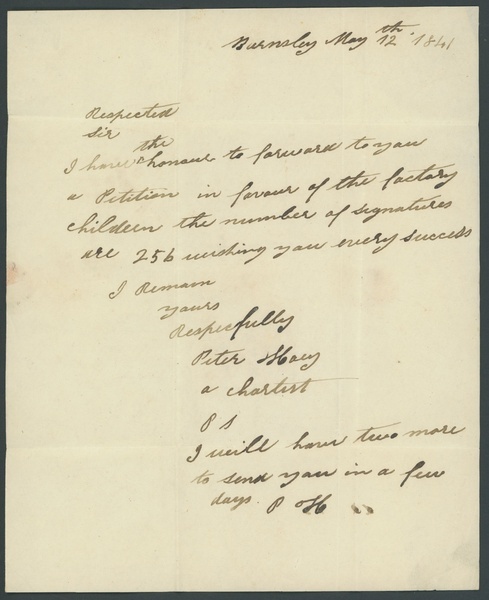 Barnsley May 12th. 1841
Respected
Sir
I have the honour to forward to you
a Petition in favour of the factory
childeen the number of signatures
are 256 wishing you every success
I Remain
yours
Respecfully
Peter Hoey
a chartist
P S
I will have two more
to send you in a few
days. P H